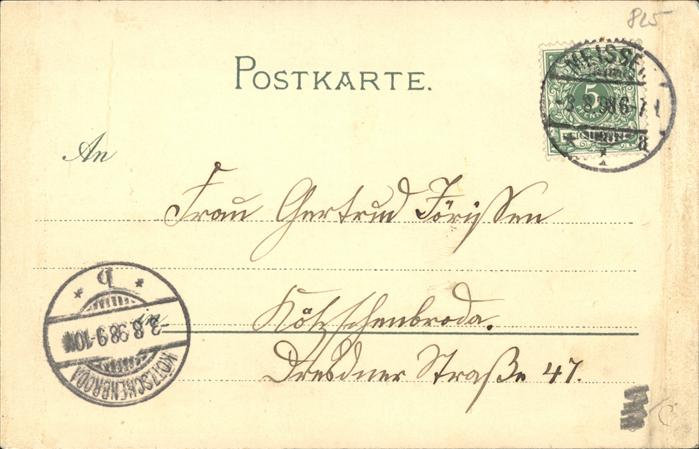 825
POSTKARTE.
MEISSEN
-3.8.98 6-7
* 1 * a
5
An
Frau Gertrud Jörissen
Kötzschenbroda.
Dresdner Straße 47.
* b *
-3.8.98 9-10
KÖTZSCHENBRODA